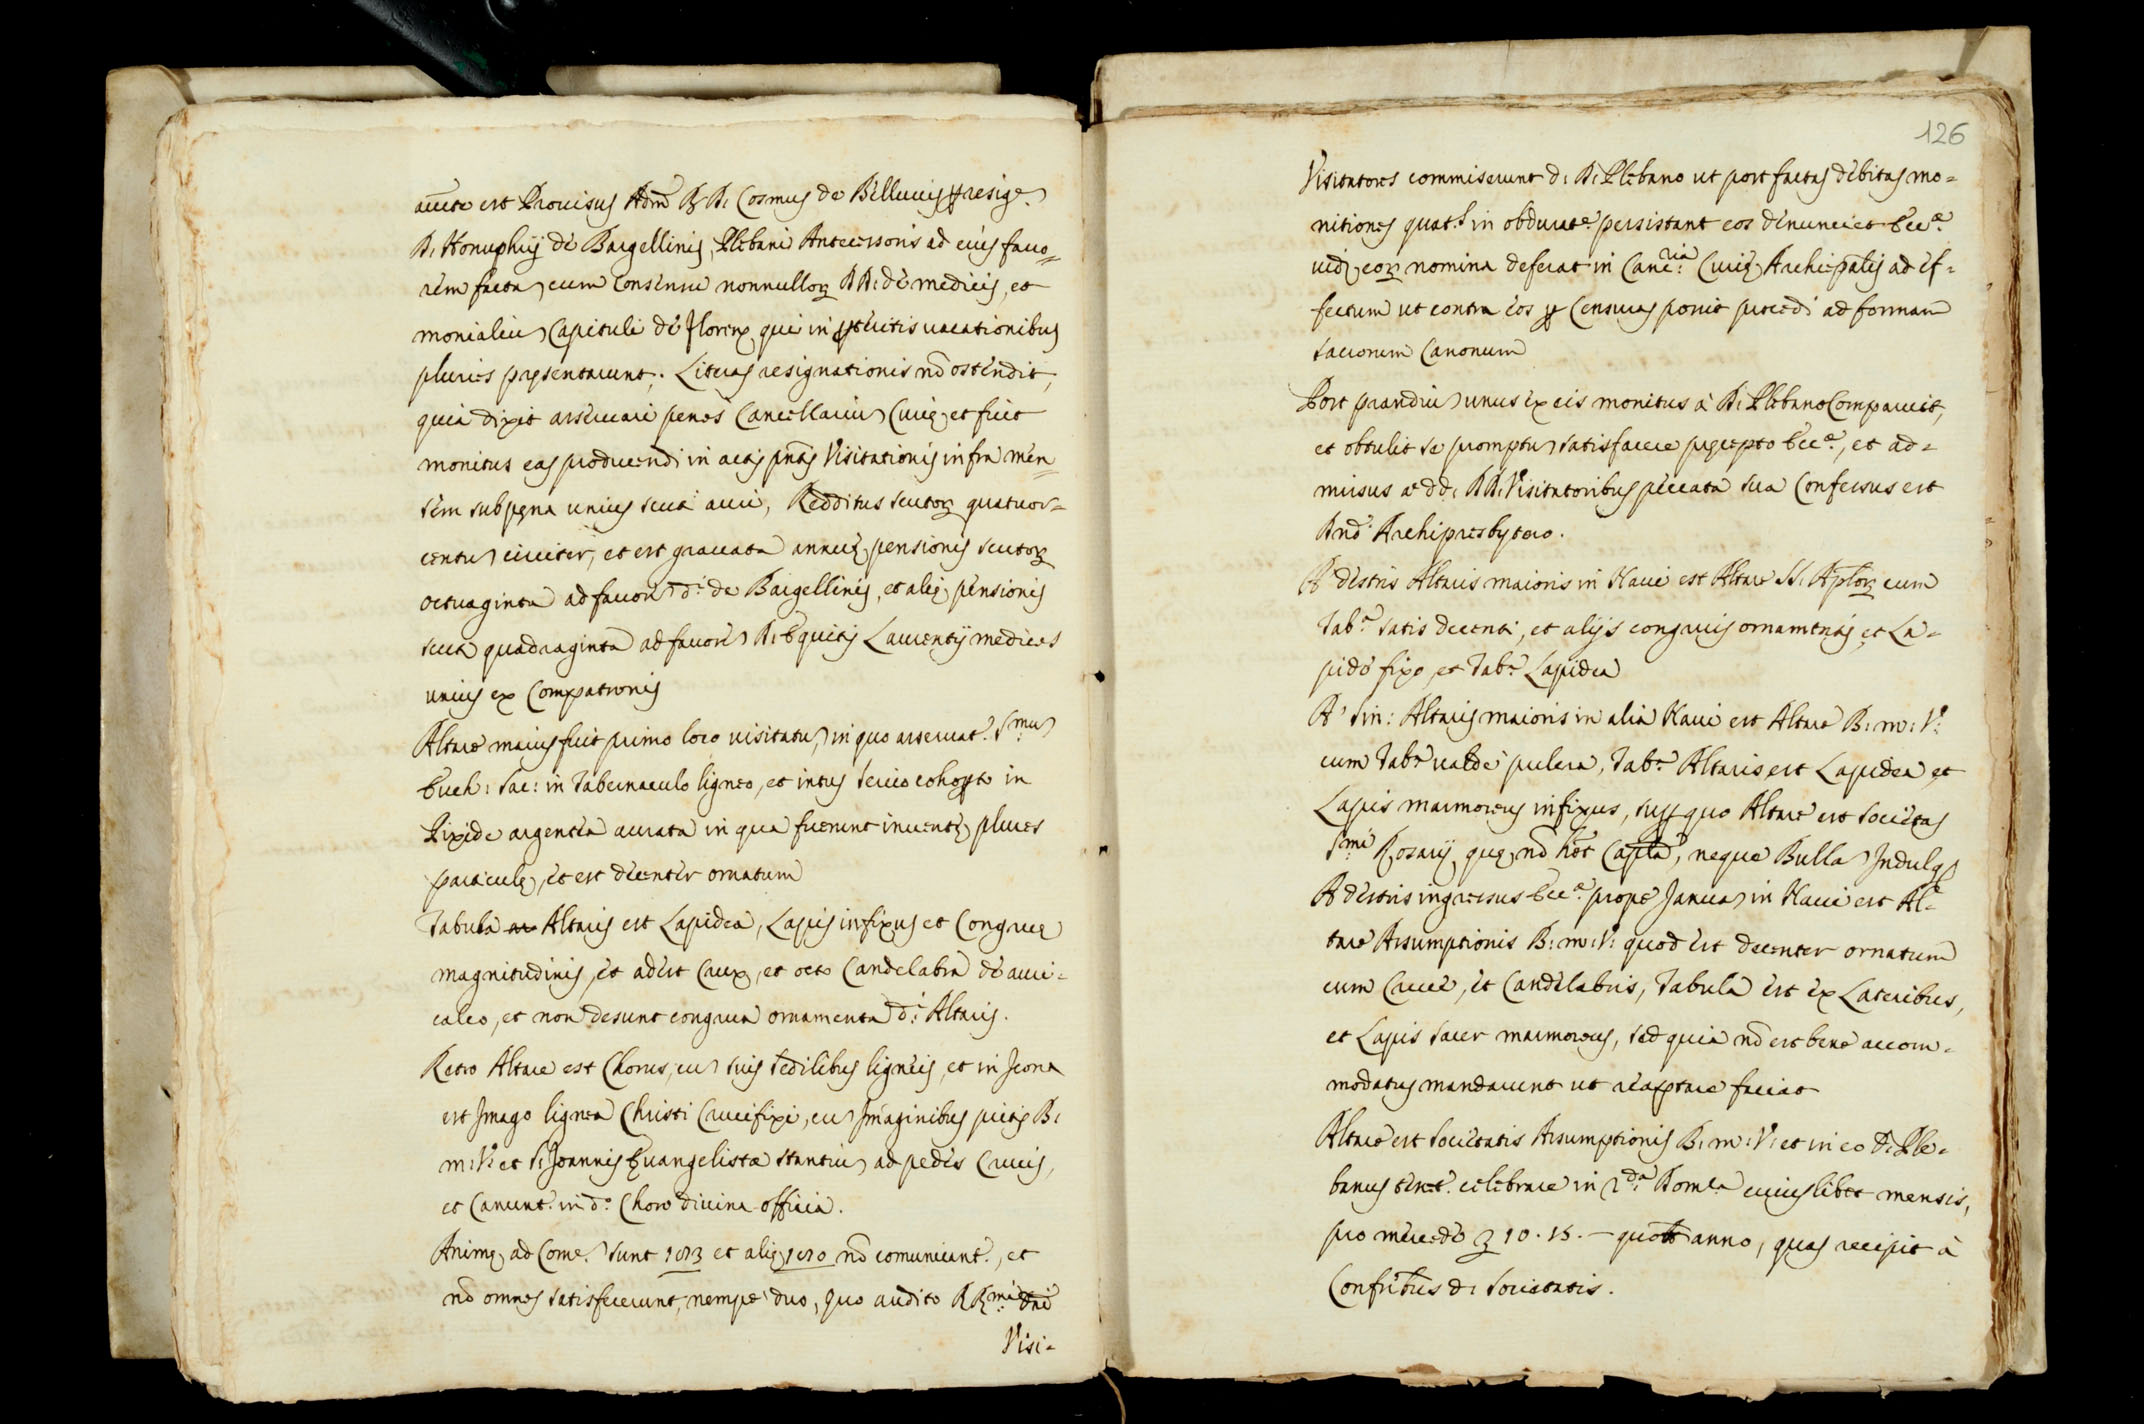 est Prouisus Adm̃ R. D. Cosmus de Billuiis ꝑ resig.
D. Honuphrij de Bargellinis, Plebani Antecessoris ad eius fauo=
rem facta, cum consensu nonnullorꝫ DD. de medicis, et
monialiũ Capituli de Florenx, qui in ꝓteritis uacationibus
pluries pręsentarunt. Literas resignationis nõ ostendit,
quia dixit asseruari penes Cancellariũ Curię, et fuit
monitus eas producendi in actis pñtis Visitationis infra men=
sem sub pęna unius scuti auri, Redditus scutorꝫ quatuor=
centũ circiter, et est grauata annuę pensionis scutorꝫ
octuaginta ad fauorẽ d.i de Bargellinis, et alię pensionis
scut. quadraginta ad fauorẽ D. Equitis Laurentij medices
unius ex Compatronis
Altare maius fuit primo loco uisitatũ, in quo asseruat.r S.mũ
Euch: Sac: in Tabernaculo ligneo, et intus serico cohoꝑto in
Pixide argentea aurata in qua fuerunt inuentę plures
particulę, et est decenter ornatum
Tabula Altaris est Lapidea, Lapis infixus et Congruę
magnitudinis, et adest Crux, et octo Candelabra de auri=
calco, et non desunt congrua ornamenta d.i Altaris.
Retro Altare est Chorus, cũ suis sedilibus ligneis, et in Icona
est Imago lignea Christi Crucifixi, cũ Imaginibus pictis B:
m: V: et S: Joannis Euangelistæ stantiũ ad pedes Crucis,
et Canunt.r in d.o Choro diuina officia.
Animę ad Com.e sunt 1073 et alię 1010 nõ comunicant.r, et
nõ omnes satisfecerunt, nempe duo, Quo audito RR.mi Dñi
Visi=
126
Visitatores commiserunt d: D: Plebano ut post factas debitas mo=
nitiones quat.s in obdurat.e persistant eos denunciet Ecc.ę
uid, eorꝫ nomina deferat in Canc.ria Curię Archiepãlis ad ef=
fectum ut contra eos ꝑ Censuras possit procedi ad formam
sacrorum Canonum
Post prandiũ unus ex eis monitus à D: Plebano Comparuit,
et obtulit se promptũ satisfacere pręcepto Ecc.ę, et ad=
missus a dd: DD: Visitatoribus peccata sua Confessus est
Dnõ Archipresbytero.
A dextris Altaris maioris in Naui est Altare SS: Aplorꝫ cum
Tab.a satis decenti, et alijs congruis ornamentis, et La=
pide fixo, et Tab.a Lapidea
A' sin: Altaris maioris in alia Naui est Altare B: m: V:
cum Tab.a ualde pulcra, Tab.a Altaris est Lapidea, et
Lapis marmoreus infixus, suꝑ quo Altare est Societas
S.mi Rosarij, quę nõ h̃et Cap.la, neque Bullã Indulg.
A dextris ingressus Ecc.ę prope Januã in Naui est Al=
tare Assumptionis B: m: V: quod est decenter ornatum
cum Cruce, et Candelabris, Tabula est ex Lateribus,
et Lapis sacer marmoreus, sed quia nõ est bene accom=
modatus mandarunt ut reaptare faciat
Altare est Societatis Assumptionis B: m: V: et in eo D: Ple=
banus tenet.r celebrare in 2.da Domca cuiuslibet mensis,
pro mercede ʒ 10. 15. — quott anno, quas recipit à
Confribus d: Societatis.